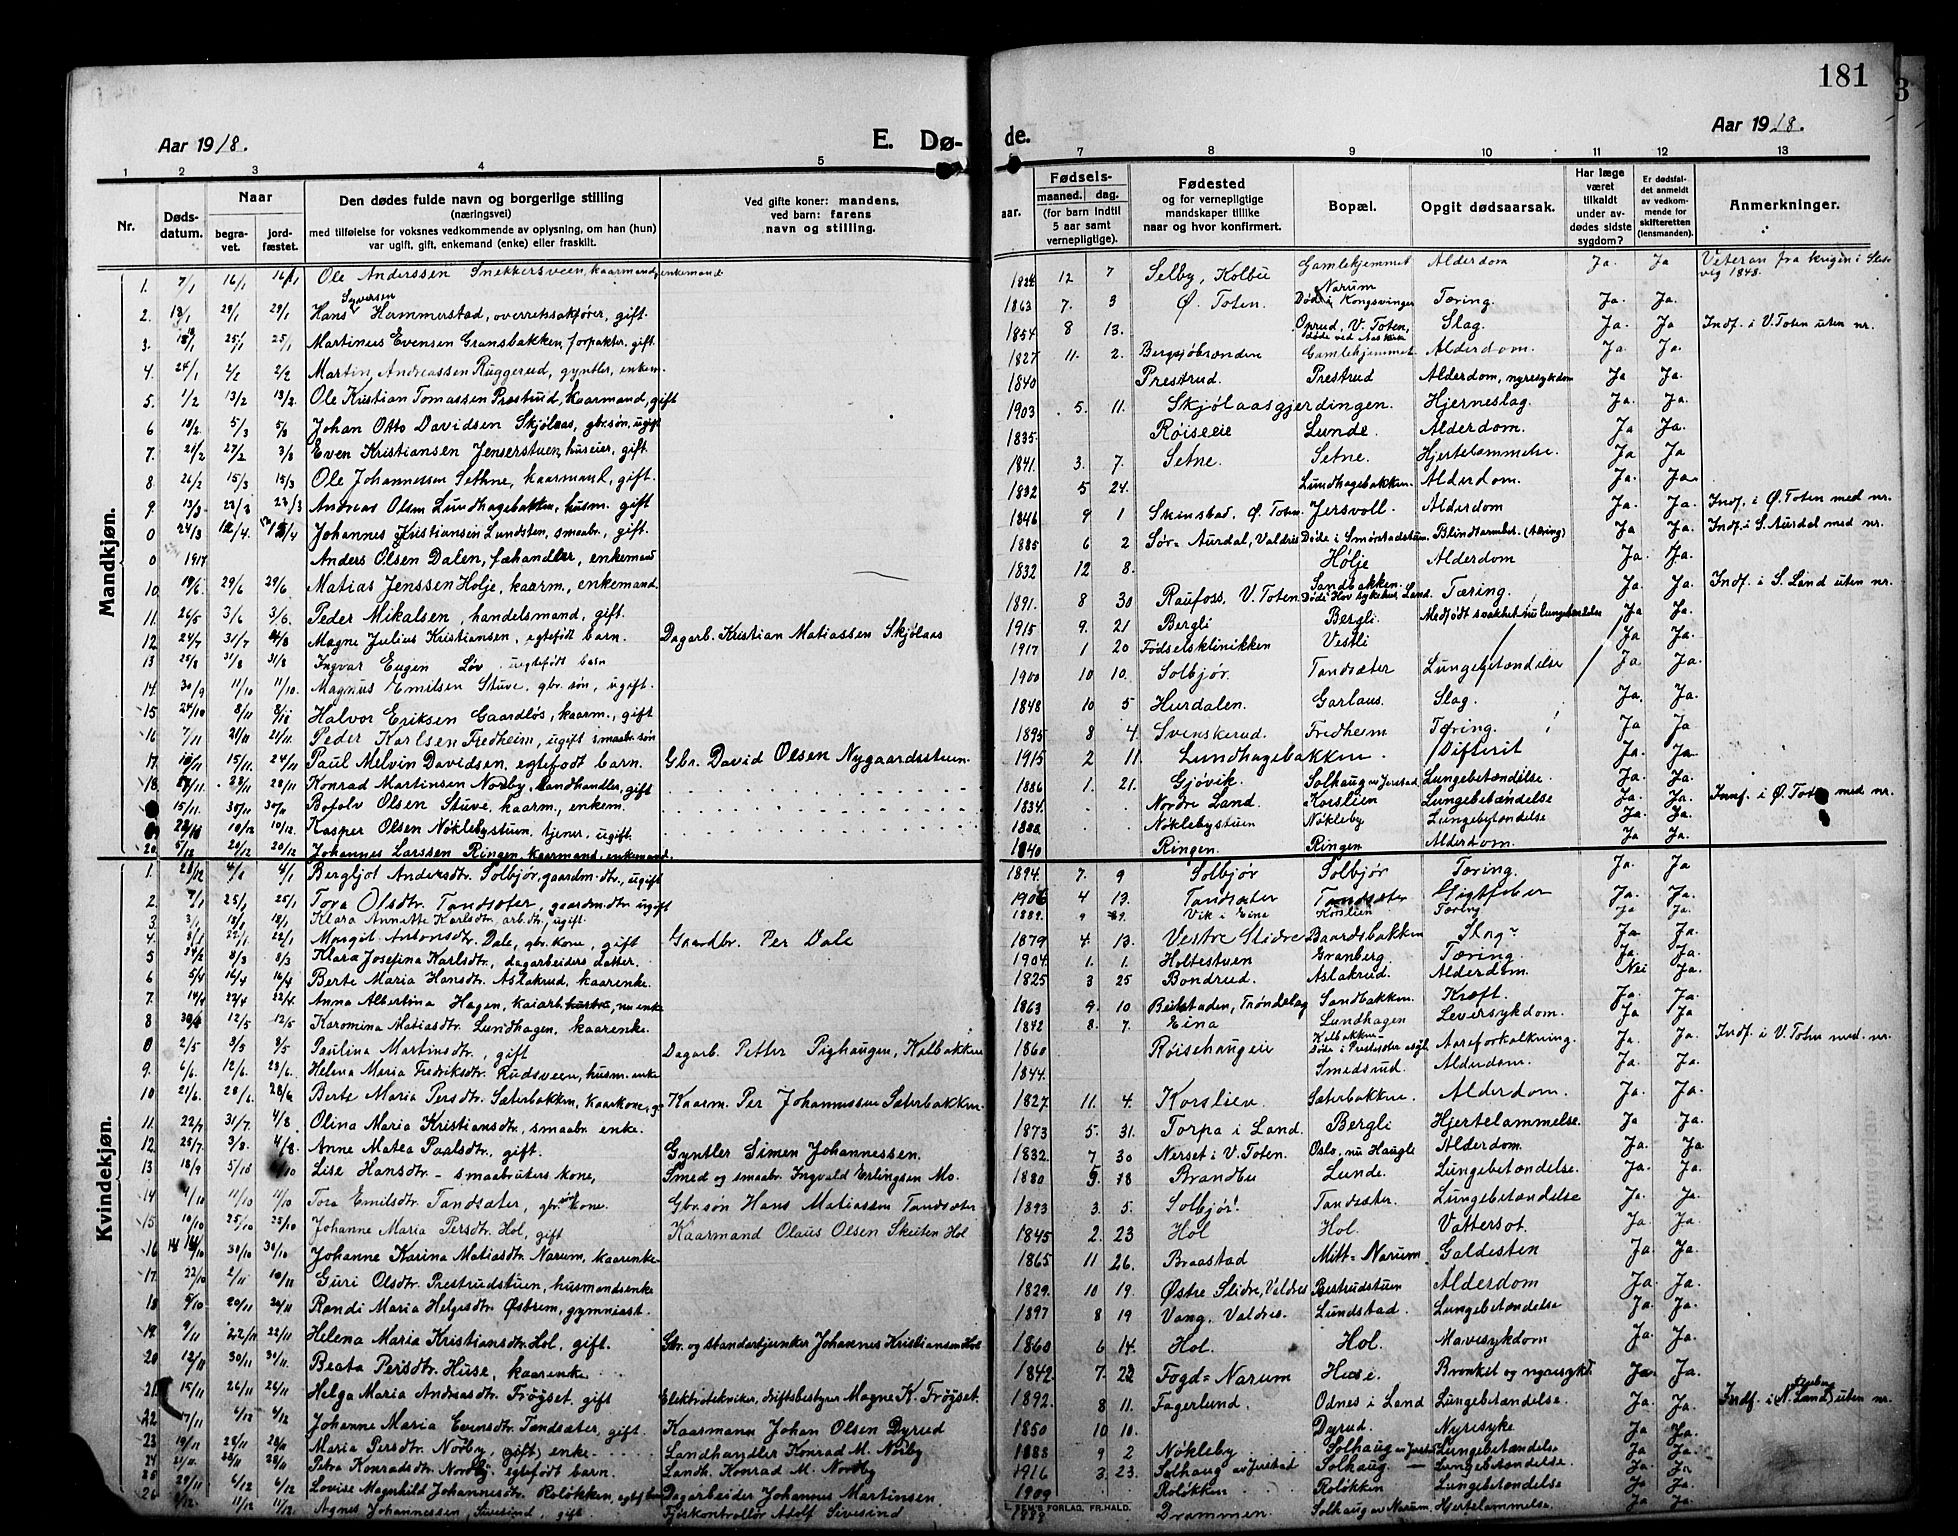 181
Aar 1918.
E. Dø- de.
Aar 1918.
1 2 3 4 5 7 8 9 10 11 12 13
Nr.
Døds-datum.
Naar
begra-vet.
jord-fæstet.
Den dødes fulde navn og borgerlige stilling
(næringsvei)
med tilføielse for voksnes vedkommende av oplysning, om han (hun)
var ugift, gift, enkemand (enke) eller fraskilt.
Ved gifte koner: mandens,
ved barn: farens
navn og stilling.
Fødsels-
aar. maaned. dag.
(for barn indtil
5 aar samt
vernepligtige).
Fødested
og for vernepligtige
mandskaper tillike
naar og hvor konfirmert.
Bopæl.
Opgit dødsaarsak.
Har læge
været
tilkaldt
under av-
dødes sidste
sygdom?
Er dødsfal-
det anmeldt
av vedkom-
mende for
skifteretten
(lensmanden).
Anmerkninger.
Mandkjøn.
1. 7/1 16/1 16/1 Ole Anderssen Snekkersveen, kaarmand, enkemand 12 7 Selby, Kolbu Gamlehjemmet Alderdom Ja. Ja Veteran fra krigen i Sles-
vig 1848.
2. 13/1 29/1 29/1 Hans Syversen Hammerstad, overretssakfører, gift. 1863 7. 3 Ø. Toten. Narum Døde i Kongsvinger Tæring. Ja. Ja.
3. 25/1 25/1 Martinus Evensen Gransbakken, forpakter, gift. 1854 8 13. Oprud, V. Toten, Slag. Ja. Ja Indf. i V. Toten uten nr.
4. 24/1 2/2 2/2 Martin Andreassen Ruggerud, gyntler, enkem. 1827 11. 2. Gamlehjemmet Alderdom. Ja Ja.
5. 1/2 13/2 13/2. Ole Kristian Tomassen Prestrud, kaarmand, gift 1840 Prestrud. Prestrud Alderdom, nyresykdom Ja Ja.
6 18/2. 5/3 5/3 Johan Otto Davidsen Skjölaas, gbr.søn, ugift 1903 5. 11. Skjölaasgjerdingen. Hjerneslag. Ja. Ja.
7. 21/2 27/2 3/3 Even Kristiansen Jenserstuen, huseier, gift. 1835. Røiseeie Lunde. Alderdom. Ja. Ja.
8 26/2 15/3 15/3 Ole Johannessen Sethne, kaarmand, gift. 1841. 3. 7. Setne. Setne. Hjertelammelse. Ja. Ja
9 13/3 22/3 23/3 Andreas Olsen Lundhagebakken, husm. gift 1832 5 24. Lundhagebakken. Alderdom. Ja. Ja.
0 24/3 Johannes Kristiansen Lundsten, smaabr., gift. 1846 9 1 Skinstad, Ø. Toten. Jersvoll. Alderdom Ja. Ja. Indf. i Ø. Toten med nr.
0 1917 Anders Olsen Dalen, fæhandler, enkemand 1885 6 2 Sør-Aurdal, Valdres Døde i Smørstadstun. Blindtarmbet. (Tæring) Ja Ja. Indf. i S. Aurdal med nr.
10. 19/6. 29/6 29/6. Matias Jenssen Holje, kaarm., enkemand. 1832 12 8. Hølje Alderdom Ja. Ja.
11. 26/5 3/6 3/6. Peder Mikalsen, handelsmand, gift. 1891. 8 30 Raufoss, V. Toten. Sandbakken. Døde Hov sykehus, Land Tæring. Ja. Ja. Indf. i S. Land uten nr.
12 24/7 31/7 Magne Julius Kristiansen, egtefödt barn. Dagarb. Kristian Matiassen Skjölaas 1915 9. 21 Bergli Bergli Ja Ja.
13 25/8 31/8 31/8 Ingvar Eugen Löv, uegtefödt barn 1917 1 20 Fødselsklinikken Vestli Ja Ja.
14. 30/9 11/10 11/10. Magnus Emilsen Stuve, gbr. søn, ugift. 1900 10 10. Solbjør. Tandsæter Lungebetændelse Ja. Ja.
15 24/10 8/11 Halvor Eriksen Gaardløs, kaarm., gift 1848 10 5 Hurdalen. Garlaus. Slag. Ja. Ja.
16 7/11 21/11 21/11. Peder Karlsen Fredheim, ugift smaabr. søn 1895 8 4. Svenskerud. Fredheim Tæring. Ja Ja.
17. 10/11 15/11. 24/11 Paul Melvin Davidsen, egtefødt barn. Gbr. David Olsen Nygaardsstuen 1915 2 11. Lundhagebakken. Difterit Ja. Ja
18. 28/11 28/11 Konrad Martinsen Nordby, Landhandler, gift 1886 1 21. Gjövik. Solhaug av Jerstad Lungebetændelse Ja. Ja.
15/11. 30/11 30/11 Bofolv Olsen Stuve, kaarm., enkem. 1834. Nordre Land. Korslien Lungebetændelse Ja. Ja. Innf. i Ø. Toten med nr.
10/12 10/12. Kasper Olsen Nöklebystuen, tjener, ugift. Nöklebystuen Nökleby Lungebetændelse Ja. Ja.
20. 5/12 20/12 20/12 Johannes Larssen Ringen, kaarmand, enkemand. 1840 Ringen. Ringen Alderdom. Ja Ja.
Kvindekjøn.
1. 28/12 4/1 Bergljot Andersdtr. Solbjør, gaardm.dtr., ugift 1894. 7. 9 Solbjør Solbjør Tæring. Ja. Ja
2. 7/1 25/1 25/1 Tora Olsdtr. Tandsæter, gaardm.dtr. ugift 4 13. Tandsæter Tandsæter Gigtfeber Ja. Ja.
3. 3/1 18/1 18/1 Klara Annette Karlsdtr. arb.dtr., ugift. 1889. 9 Vik i Eina Korslien Tæring Ja Ja.
4. 8/1 22/1 22/1 Margit Antonsdtr. Dale, gbr. kone, gift Gaardbr. Per Dale 1879 4. 13. Vestre Slidre Baardsbakken Slag Ja. Ja
5 24/2 8/3 8/3 Klara Josefina Karlsdtr., dagarbeiders datter. 1904. 1. 1. Holtestuen Granberg. Tæring. Ja. Ja.
6 5/4 16/4 16/4 Berte Maria Hansdtr. Aslakrud, kaarenke. 1825 3 25 Bondrud. Aslakrud. Alderdom. Nei Ja.
7. 14/4 22/4 22/4 Anna Albertina Hagen, kaiarb. hustru, nu enke. 1863 9. 10 Beitstaden, Trøndelag Sandbakken. Kræft. Ja. Ja.
8 30/4 12/5 12/5 Karomina Matiasdtr. Lundhagen, kaarenke. 1842 8. 7. Eina Lundhagen Leversykdom. Ja Ja.
0 2/5 Paulina Martinsdtr., gift Dagarb. Petter Pighaugen, Kolbakken 1860 Røisehaugeie Kolbakken- Aareforkalkning. Ja. Ja. Indf. i V. Toten med nr.
9. 6/6. 12/6 23/6. Helena Maria Fredriksdtr. Rudsveen, husm. enke 1844. Smedsrud. Alderdom. Ja Ja.
10 21/6. 28/6. 28/6 Berte Maria Persdtr. Sæterbakken, kaarkone, g. Kaarm. Per Johannessen Sæterbakken. 1827. 11. 4. Korslien Sæterbakken. Alderdom. Ja. Ja.
11. 22/7 31/7. 4/8 Olina Maria Kristiansdtr., smaabr. enke. 1873 5. 31. Torpa i Land. Bergli Hjertelammelse. Ja. Ja.
12. 25/7 3/8 4/8. Anne Matea Paulsdtr., gift. Gyntler Simen Johannessen. 1832. 7 30 Nerset i V. Toten. Oslo, nu Haugle Alderdom. Ja. Ja.
13 18/9 5/10 Lise Hansdtr - smaabrukers kone, Smed og smaabr. Ingvald Erlingsen Mo. 1880 5. 18 Brandbu Lunde. Lungebetændelse. Ja. Ja.
14 4/10 11/10 11/10 Tora Emilsdtr. Tandsæter, gbr.søn kone. Gbr.søn Hans Matiassen Tandsæter 1893 3. 5. Solbjør! Tandsæter. Lungebetændelse Ja. Ja.
15 10/10 25/10 25/10 Johanne Maria Persdtr. Hol, gift Kaarmand Olaus Olsen Skeiten Hol 1845 2. 23 Hol Hol. Vattersot. Ja Ja.
16 30/10 30/10 Johanne Karina Matiasdtr. Narum, kaarenke 1865 11 26. Braastad Mitt-Narum Galdesten Ja Ja.
17. 22/10 2/11 10/11 Guri Olsdtr. Prestrudstuen, husmandsenke 1829. 10 19. Østre Slidre, Valdres Prestrudstuen Alderdom Ja. Ja.
18 20/11 Randi Maria Helgesdtr. Østrem, gymniast. 1897 8 19 Vang, Valdres. Lundstad. Lungebetændelse Ja. Ja.
19. 9/11 22/11 22/11 Helena Maria Kristiansdtr. Hol, gift. Gbr. og standartjunker Johannes Kristiansen Hol 1860 6 14. Hol. Hol. Mavesykdom Ja Ja.
20 12/11 30/11 30/11. Beata Persdtr. Huse, kaarenke 1842. 7. 22 Fogd-Narum Huse. Bronkit og nyresykd. Ja. Ja.
21 15/11 26/11 26/11 Helga Maria Andreasdtr. Frøyset, gift Elektrotekniker, driftsbestyrer Magne K. Frøyset. 1892. 8 11. Fagerlund. Odnes i Land Lungebetændelse. Ja Ja. Indf. i (N. Land) uten nr.
22. 17/11 6/12 6/12 Johanne Maria Evensdtr. Tandsæter, gift. Kaarmann Johan Olsen Dyrud 1850 10 10. Dyrud. Nyresyke Ja. Ja.
23 19/11 28/11 28/11 Maria Persdtr. Nordby, (gift) enke Landhandler Konrad M. Nordby 1888 9 2 Nøkleby Solhaug av Jerstad Lungebetændelse Ja Ja.
24 21/11. 28/11 28/11 Petra Konradsdtr. Nordby, egtefødt barn. Landh. Konrad M. Nordby 1916 3. 23. Solhaug av Jerstad Solhaug Lungebetændelse. Ja. Ja
25 29/11 6/12 6/12 Lovise Magnhild Johannesdtr. Roløkken, Dagarbeider Johannes Martinsen. 1909 Roløkken Roløkken Lungebetændelse Ja Ja.
26 11/12 11/12. Agnes Johannessen, Sivesind, gift Fjøskontrollör Adolf Sivesind Drammen Solhaug av Narum, Hjertelammelse. Ja Ja.
SEM'S FORLAG, FR.HALD.